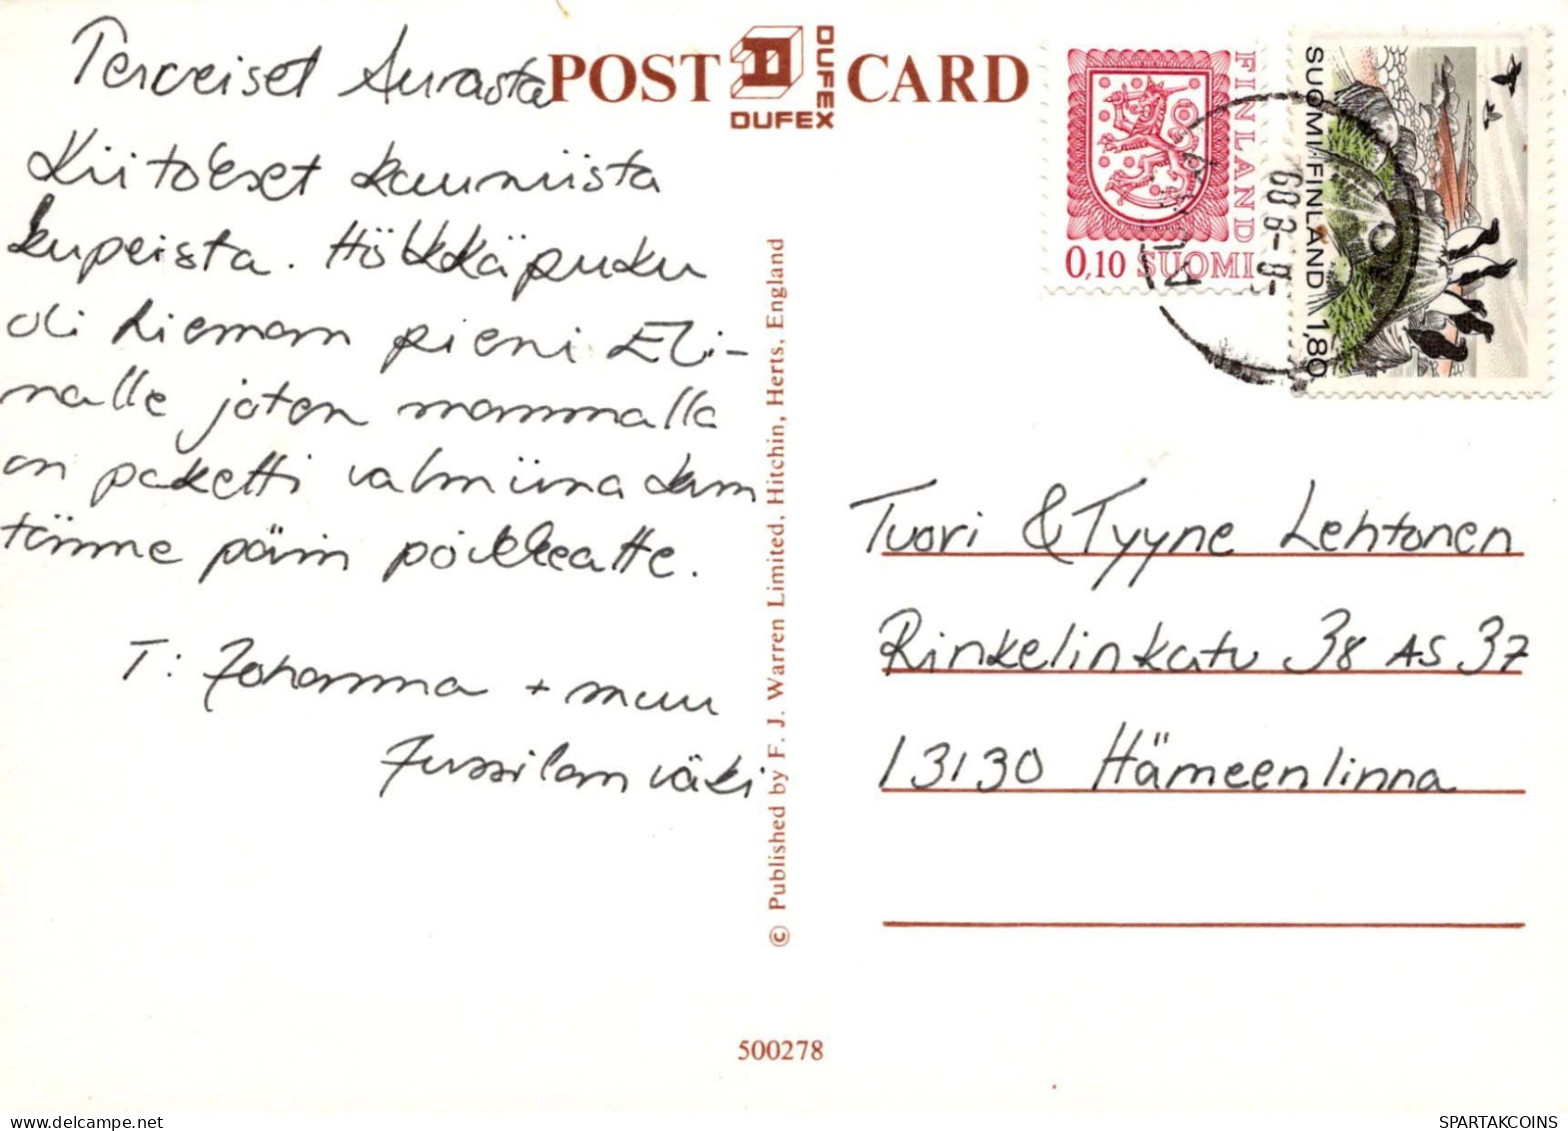 Terveiset Aurasta
Kiitokset kauniista
kupeista. Hölkkäpuku
oli hieman pieni Eli-
nalle joten mammalla
on paketti valmiina kun
tänne päin poikkeatte.
T: Johanna + muu
Jussilan väki
POST CARD
DUFEX
DUFEX
FINLAND
0,10 SUOMI
SUOMI-FINLAND 1,80
-8-8.89
© Published by F. J. Warren Limited, Hitchin, Herts, England
Tuori & Tyyne Lehtonen
Rinkelinkatu 38 AS 37
13130 Hämeenlinna
500278
SPARTAKCOINS